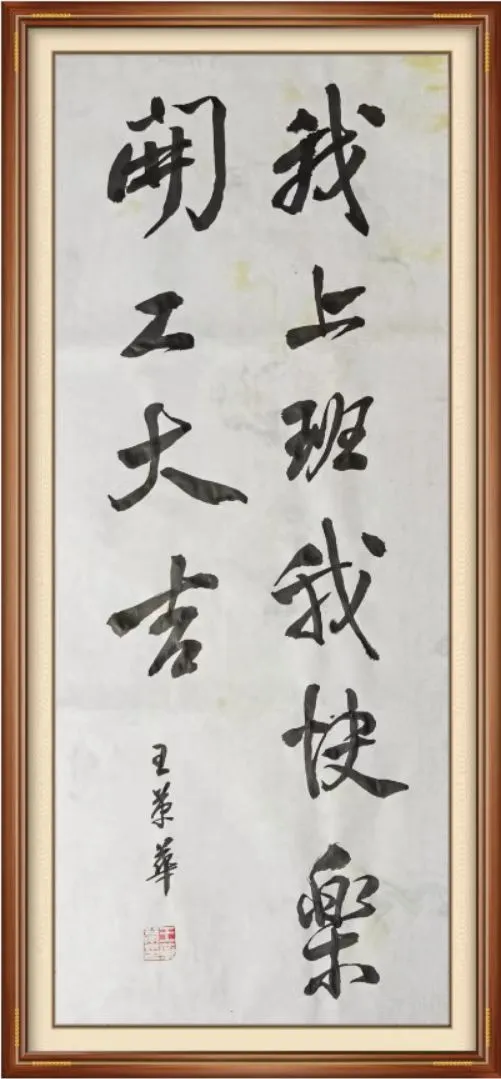 我上班我快樂
開工大吉
王 華